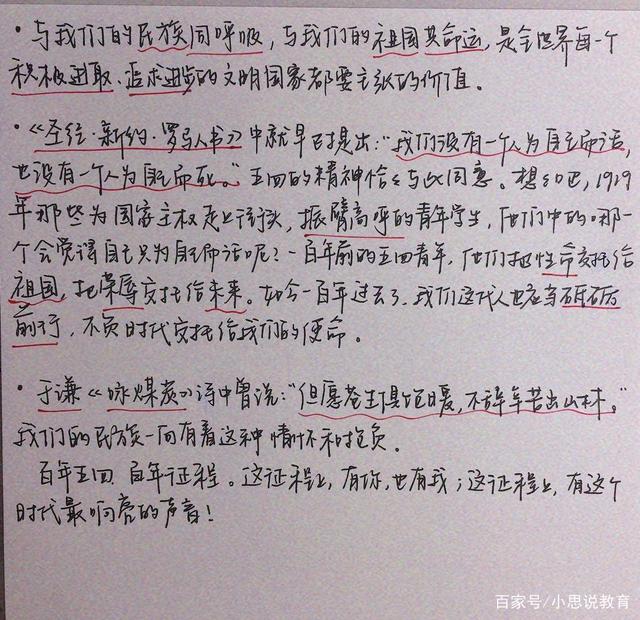 ·与我们的民族同呼吸，与我们的祖国共命运，是全世界每一个
积极进取、追求进步的文明国家都要主张的价值。
·《圣经·新约·罗马人书》中就早已提出：“我们没有一个人为自己而活，
也没有一个人为自己而死。”五四的精神恰恰与此同意。想想吧，1919
年那些为国家主权走上街头，振臂高呼的青年学生，他们中的哪一
个会觉得自己只为自己而活呢？一百年前的五四青年，他们把性命交托给
祖国，把荣辱交托给未来。如今一百年过去了，我们这代人也应当砥砺
前行，不负时代交托给我们的使命。
·于谦《咏煤炭》诗中曾说：“但愿苍生俱饱暖，不辞辛苦出山林。”
我们的民族一向有着这种情怀和抱负。
百年五四，百年征程。这征程上，有你，也有我；这征程上，有这个
时代最响亮的声音！
百家号/小思说教育